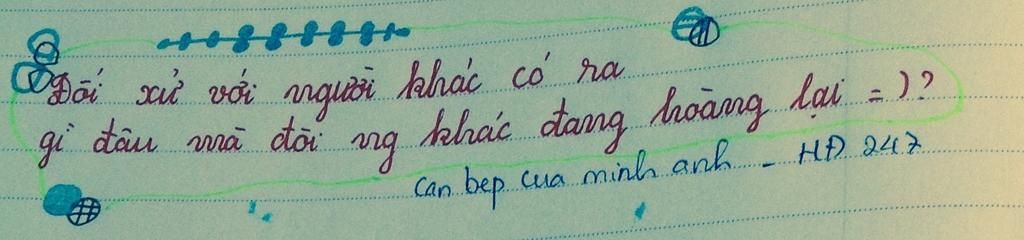 Đối xử với người khác có ra
gì đâu mà đòi ng khác đang hoàng lại =)?
can bep cua minh anh - HĐ 247